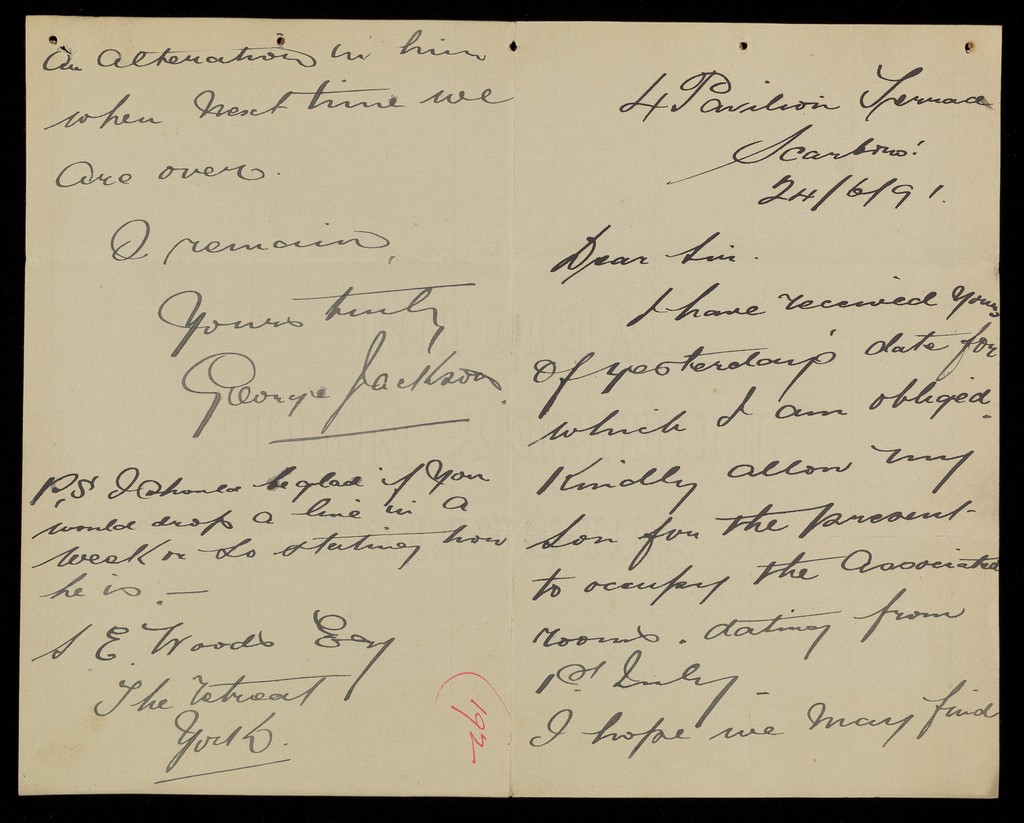 4 Pavilion Terrace
Scarboro'.
24/6/91.
Dear Sir.
I have received Yours
Of yesterday's date for
which I am obliged.
Kindly allow my
Son for the present
to occupy the Associated
rooms. dating from
1st July
I hope we May find
An Alteration in him
when Next time we
Are over.
I remain,
Yours truly
George Jackson.
P.S. I should be glad if You
would drop a line in a
Week or so stating how
he is. —
S E. Woods Esq
The retreat
York.
192